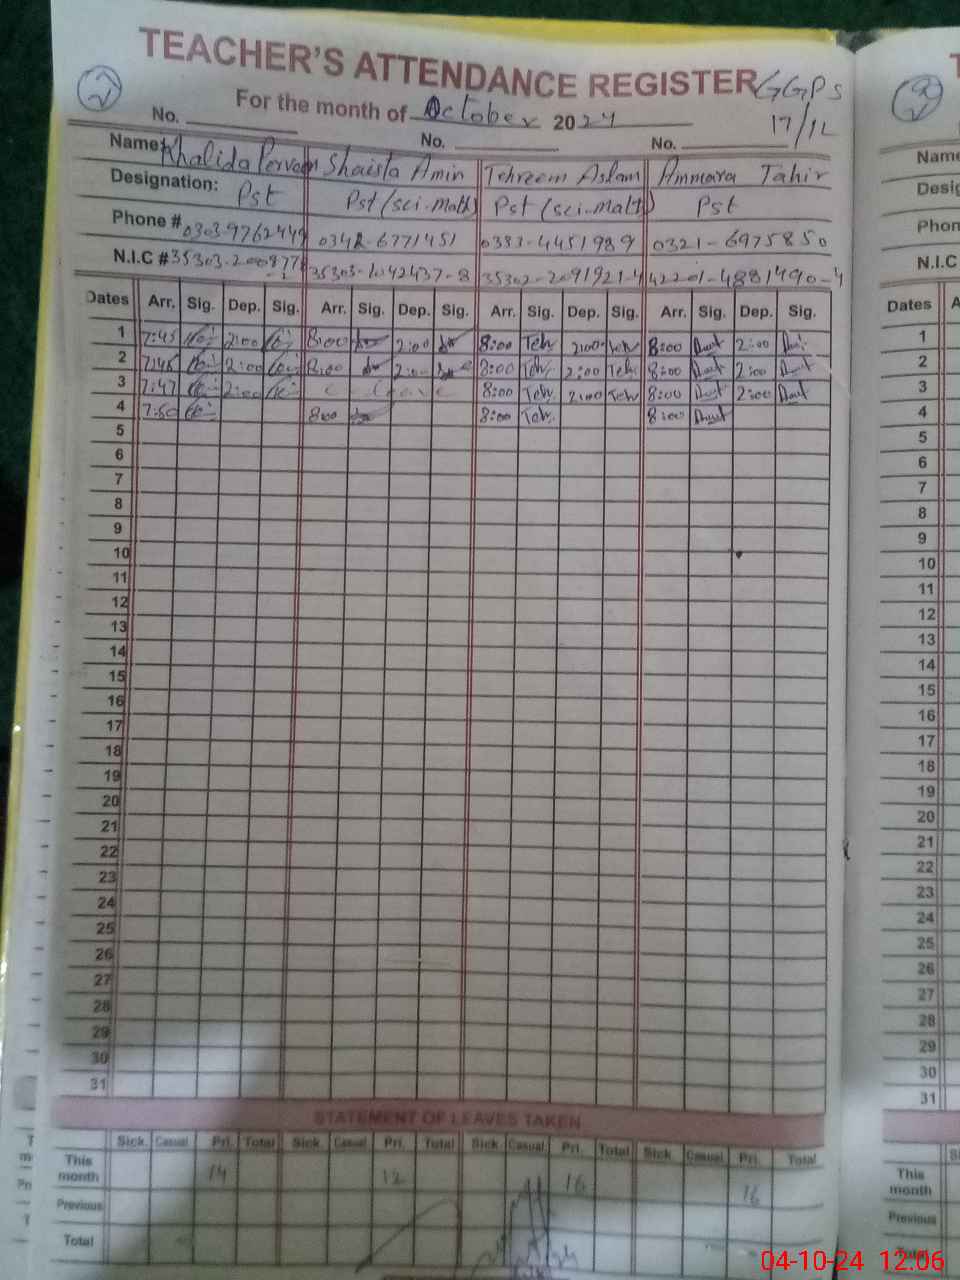 TEACHER'S ATTENDANCE REGISTER GGPS
For the month of October 2024 17/1L
No. No. No.
Name: Khalida Perveen Shaista Amin Tehreem Aslam Ammara Tahir
Designation: Pst Pst (sci-math) Pst (sci-math) Pst
Phone # 0303-9762449 0342-6771451 0333-4451989 0321-6975850
N.I.C # 35303-1042437-8 35302-2091921-4 42201-4881490-4
Dates Arr. Sig. Dep. Sig. Arr. Sig. Dep. Sig. Arr. Sig. Dep. Sig. Arr. Sig. Dep. Sig.
1 7:45 2:00 8:00 2:00 8:00 Teh 2:00 Teh 8:00 2:00
2 7:45 2:00 8:00 2:00 8:00 Teh 2:00 Teh 8:00 2:00
3 7:47 2:00 C. Leave 8:00 Teh 2:00 Teh 8:00 2:00
4 7:50 8:00 8:00 Teh 8:00
5
6
7
8
9
10
11
12
13
14
15
16
17
18
19
20
21
22
23
24
25
26
27
28
29
30
31
STATEMENT OF LEAVES TAKEN
Sick Casual Pri. Total Sick Casual Pri. Total Sick Casual Pri. Total Sick Casual Pri. Total
This month 14 12 16 16
Previous
Total
Name
Phon
N.I.C
Dates
1
2
3
4
5
6
7
8
9
10
11
12
13
14
15
16
17
18
19
20
21
22
23
24
25
26
27
28
29
30
31
This month
Previous
Total
04-10-24 12:06